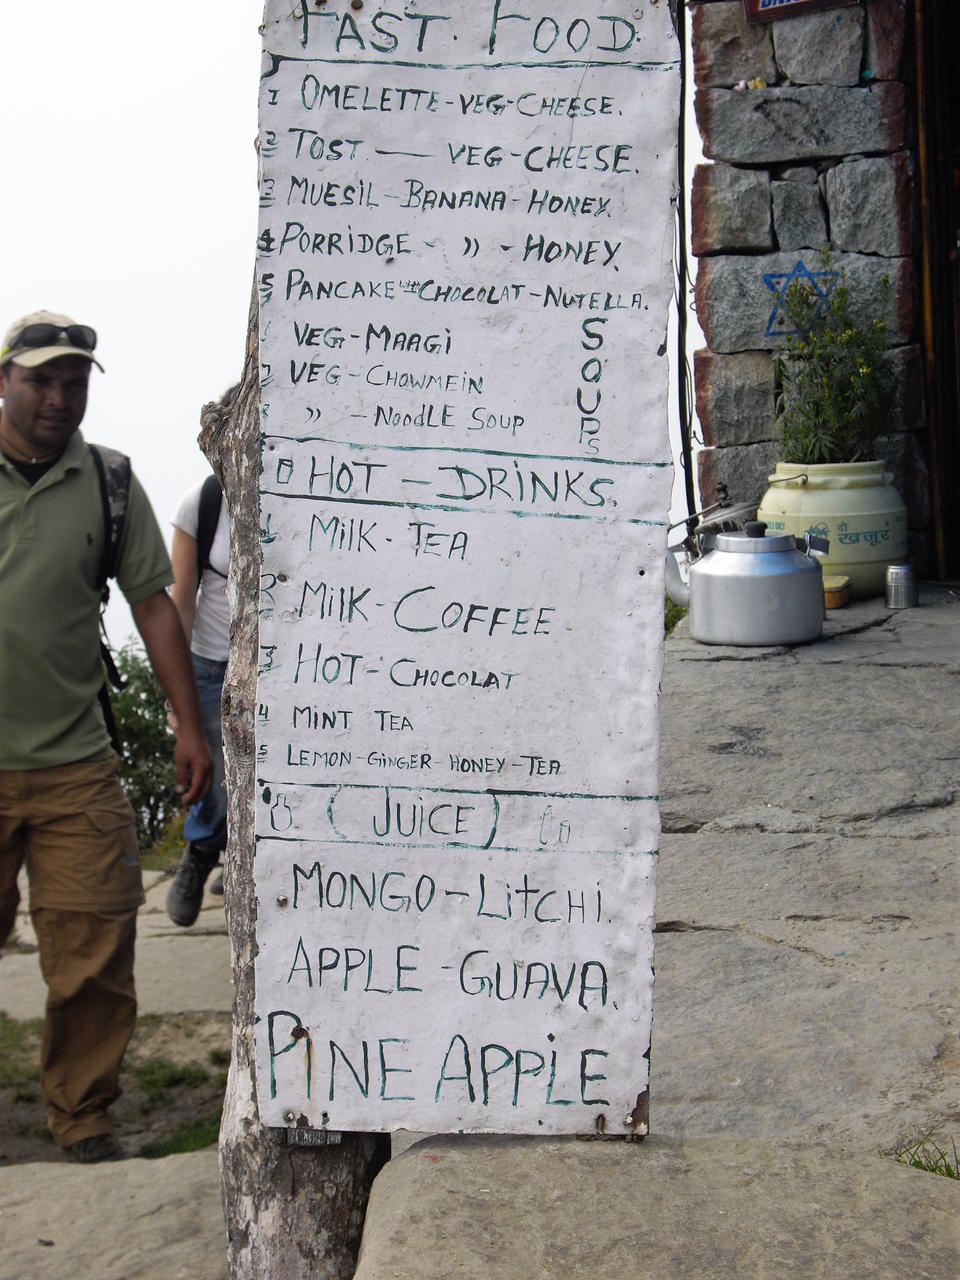 FAST. FOOD.
1 OMELETTE-VEG-CHEESE.
2 TOST — VEG-CHEESE.
3 MUESiL-BANANA-HONEY.
4 PORRiDGE - " - HONEY.
5 PANCAKE CHOCOLAT-NUTELLA.
VEG-MAAGi
7 VEG-CHOWMEiN
8 " -NOODLE SOUP
SOUPS
HOT - DRiNKS.
1 MiLK-TEA
2 MiLK-COFFEE
3 HOT-CHOCOLAT
4 MiNT TEA
5 LEMON-GiNGER-HONEY-TEA
(JUiCE)
MONGO-LiTCHi.
APPLE-GUAVA.
PiNE APPLE
दो खजूर